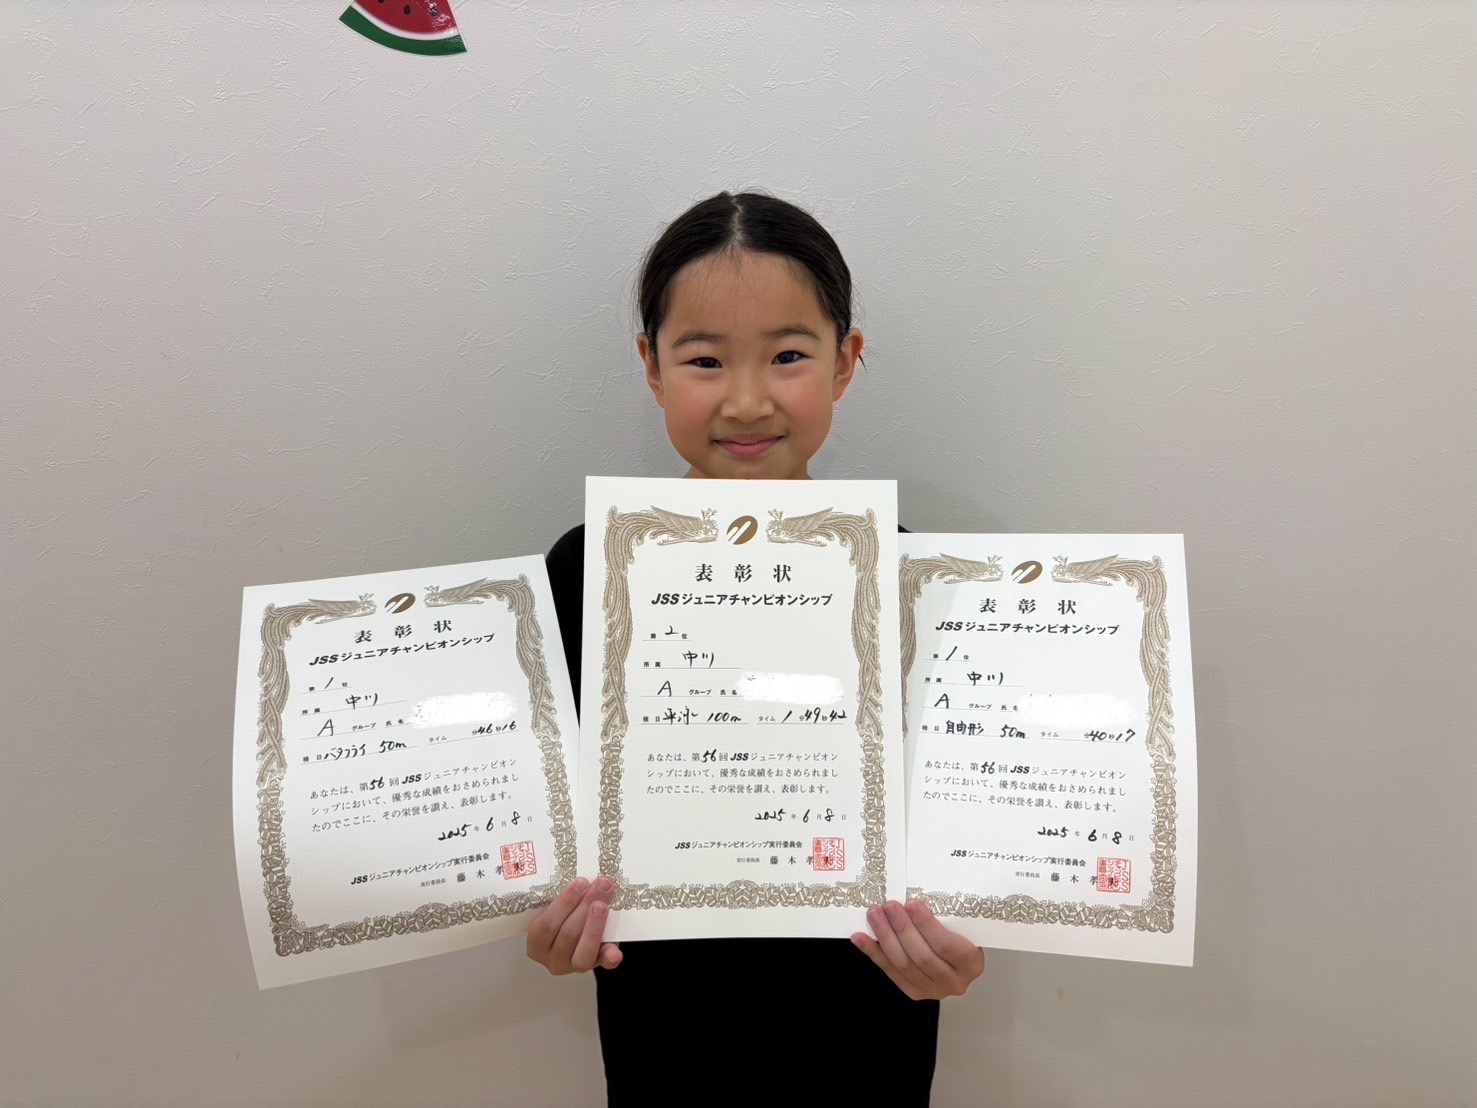 表彰状
JSSジュニアチャンピオンシップ
第 1 位
所属 中川
A グループ 氏名
種目 バタフライ 50m タイム 分46秒16
あなたは、第56回JSSジュニアチャンピオン
シップにおいて、優秀な成績をおさめられまし
たのでここに、その栄誉を讃え、表彰します。
2025年6月8日
JSSジュニアチャンピオンシップ実行委員会
実行委員長 藤木孝
表彰状
JSSジュニアチャンピオンシップ
第 2 位
所属 中川
A グループ 氏名
種目 平泳ぎ 100m タイム 1分49秒42
あなたは、第56回JSSジュニアチャンピオン
シップにおいて、優秀な成績をおさめられまし
たのでここに、その栄誉を讃え、表彰します。
2025年6月8日
JSSジュニアチャンピオンシップ実行委員会
実行委員長 藤木孝
表彰状
JSSジュニアチャンピオンシップ
第 1 位
所属 中川
A グループ 氏名
種目 自由形 50m タイム 分40秒17
あなたは、第56回JSSジュニアチャンピオン
シップにおいて、優秀な成績をおさめられまし
たのでここに、その栄誉を讃え、表彰します。
2025年6月8日
JSSジュニアチャンピオンシップ実行委員会
実行委員長 藤木孝